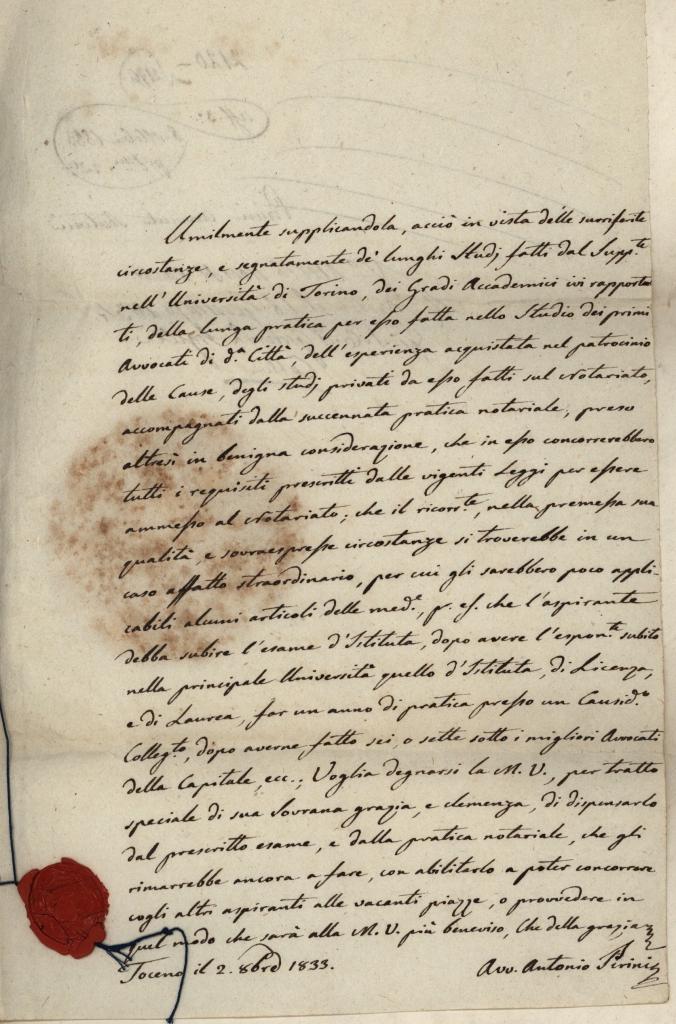 Umilmente supplicandola, acciò in vista delle surriferite
circostanze, e segnatamente de' lunghi Studj fatti dal Supp.te
nell'Università di Torino, dei Gradi Accademici ivi rapporta
ti, della lunga pratica per esso fatta nello Studio dei primi
Avvocati di d.a Città, dell'esperienza acquistata nel patrocinio
delle Cause, degli studj privati da esso fatti sul Notariato,
accompagnati dalla succennata pratica notariale, preso
altresì in benigna considerazione, che in esso concorrerebbero
tutti i requisiti prescritti dalle vigenti Leggi per essere
ammesso al Notariato; che il ricorr.te, nella premessa sua
qualità, e sovraespresse circostanze si troverebbe in un
caso affatto straordinario, per cui gli sarebbero poco appli-
cabili alcuni articoli delle med.e, p. es. che l'aspirante
debba subire l'esame d'Istituta, dopo avere l'espon.te subito
nella principale Università quello d'Istituta, di Licenza,
e di Laurea, far un anno di pratica presso un Causid.o
Colleg.to, dopo averne fatto sei, o sette sotto i migliori Avvocati
della Capitale, ecc.; Voglia degnarsi la M. V., per tratto
speciale di sua Sovrana grazia, e clemenza, di dispensarlo
dal prescritto esame, e dalla pratica notariale, che gli
rimarrebbe ancora a fare, con abilitarlo a poter concorrere
cogli altri aspiranti alle vacanti piazze, o provvedere in
quel modo che sarà alla M. V. più beneviso, Che della grazia
Toceno il 2. 8bre 1833. Avv. Antonio Perini